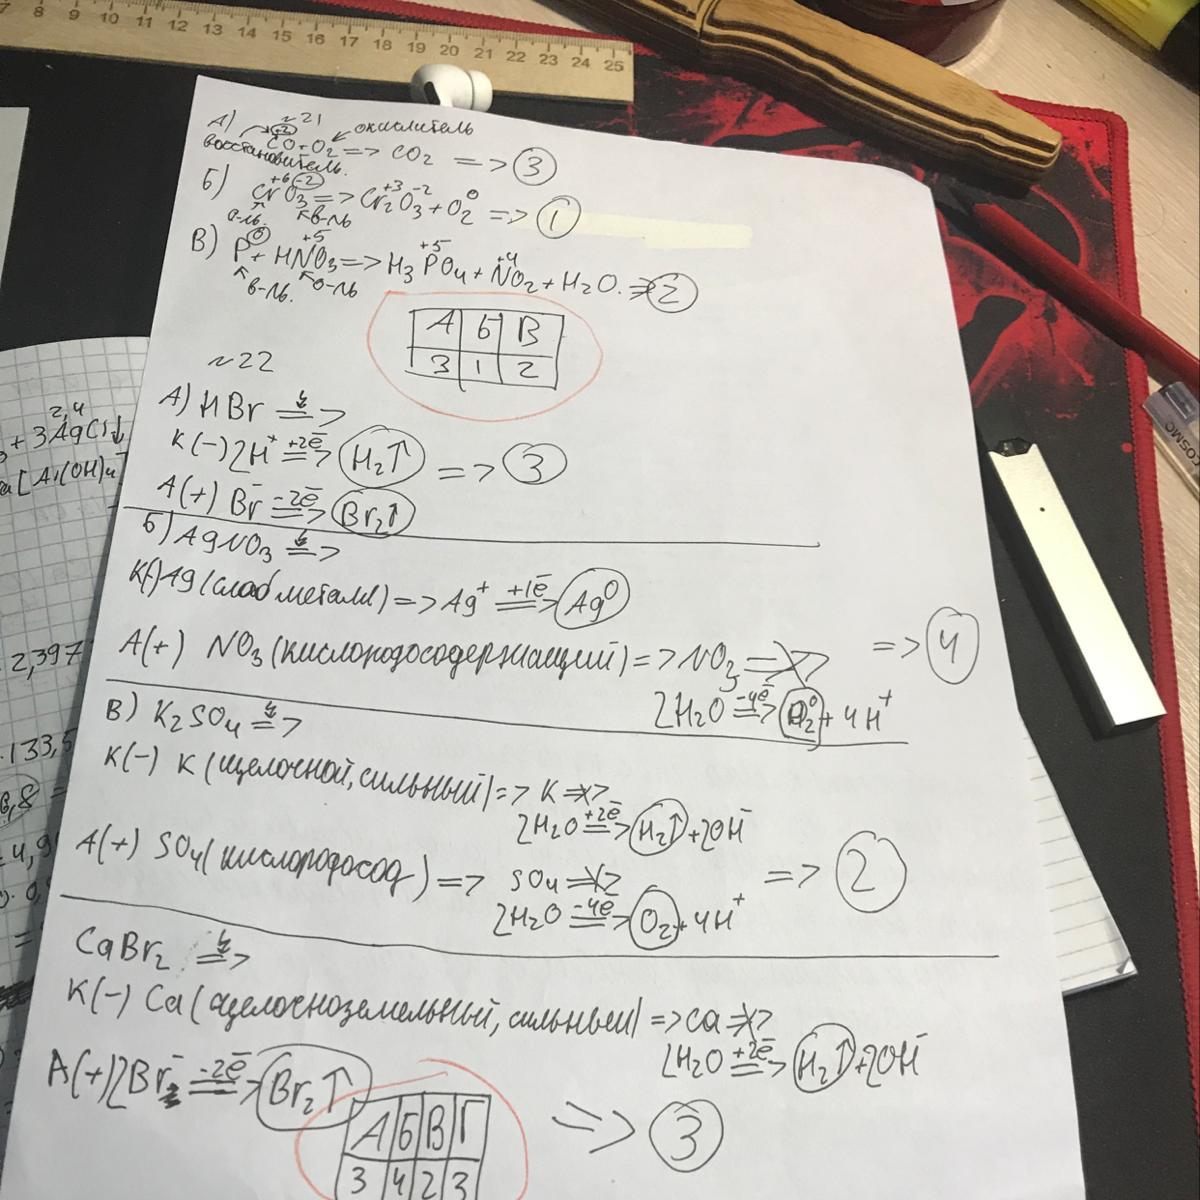 7 8 9 10 11 12 13 14 15 16 17 18 19 20 21 22 23 24 25
№21
А) CO + O2 => CO2 => 3
+2
окислитель
восстановитель.
Б) CrO3 => Cr2O3 + O2 => 1
+6 -2 +3 -2 0
о-ль. в-ль
В) P + HNO3 => H3PO4 + NO2 + H2O. => 2
0 +5 +5 +4
в-ль. о-ль
А Б В
3 1 2
№22
А) HBr =>
К(-) 2H+ +2ē => H2↑ => 3
А(+) Br- -2ē => Br2↑
Б) AgNO3 =>
К(-) Ag (слаб металл) => Ag+ +1ē => Ag0
А(+) NO3 (кислородосодержащий) => NO3 => => 4
2H2O -4ē => O2 0 + 4H+
В) K2SO4 =>
К(-) K (щелочной, сильный) => K =>
2H2O +2ē => H2↑ + 2OH-
А(+) SO4 (кислородосод) => SO4 => => 2
2H2O -4ē => O2 + 4H+
CaBr2 =>
К(-) Ca (щелочноземельный, сильный) => Ca =>
2H2O +2ē => H2↑ + 2OH-
А(+) 2Br- -2ē => Br2↑ => 3
А Б В Г
3 4 2 3
2,4
+ 3AgCl↓
[Al(OH)4]
2,397
133,5
COSMC